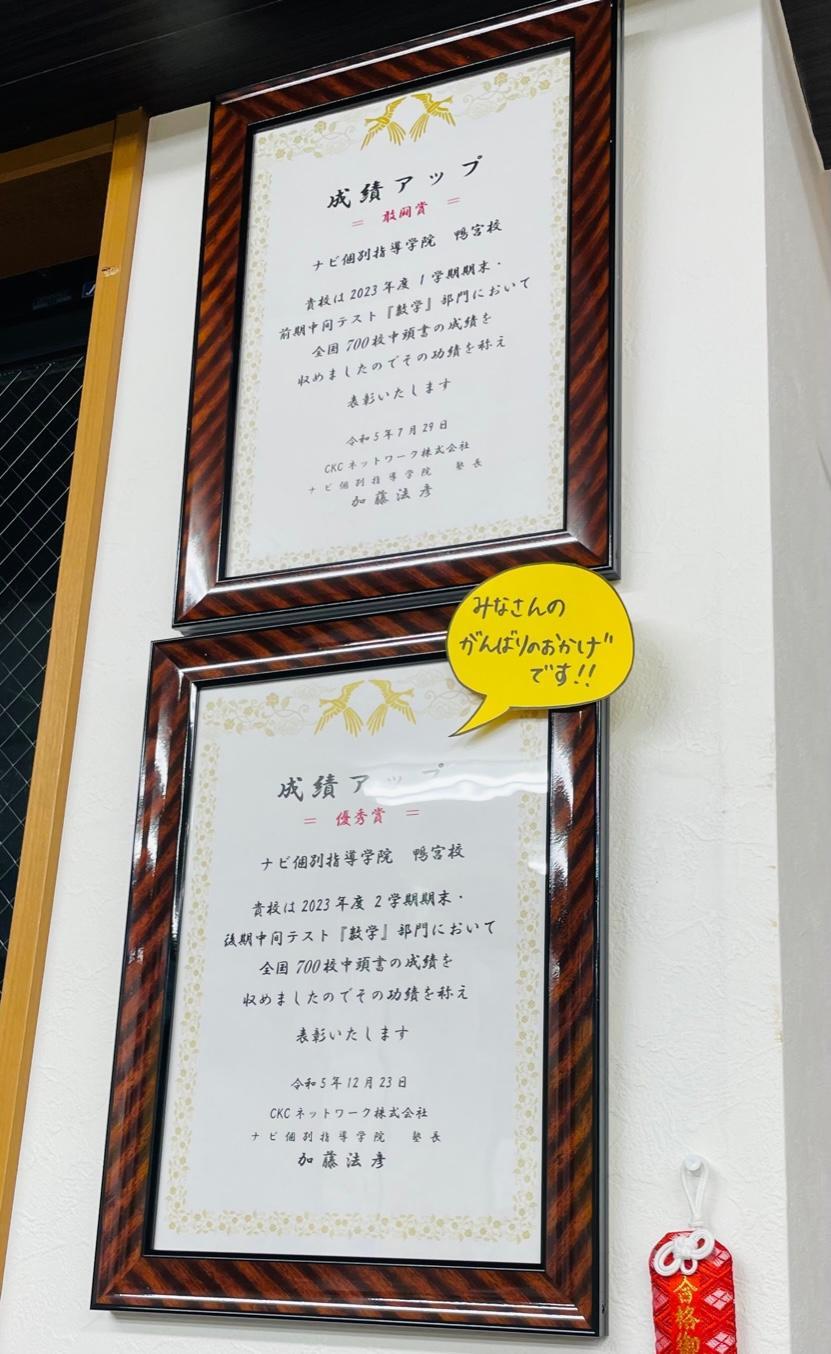 成績アップ
＝ 敢闘賞 ＝
ナビ個別指導学院　鴨宮校
貴校は2023年度1学期期末・
前期中間テスト『数学』部門において
全国700校中頭書の成績を
収めましたのでその功績を称え
表彰いたします
令和5年7月29日
CKCネットワーク株式会社
ナビ個別指導学院　塾長
加藤法彦
みなさんの
がんばりのおかげ
です!!
成績アップ
＝ 優秀賞 ＝
ナビ個別指導学院　鴨宮校
貴校は2023年度2学期期末・
後期中間テスト『数学』部門において
全国700校中頭書の成績を
収めましたのでその功績を称え
表彰いたします
令和5年12月23日
CKCネットワーク株式会社
ナビ個別指導学院　塾長
加藤法彦
合格御